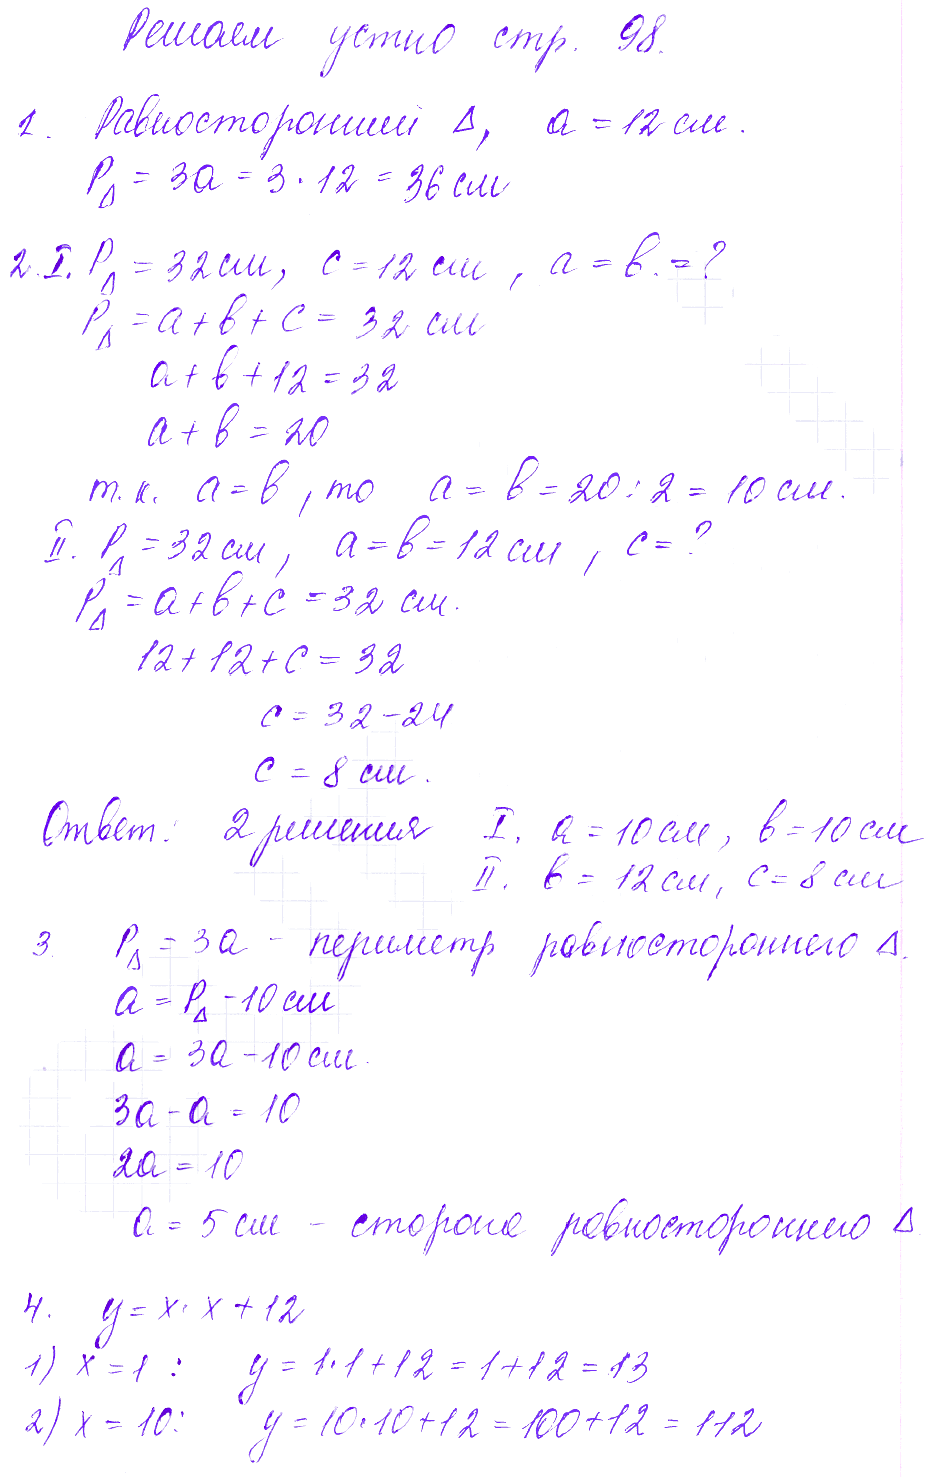 Решаем устно стр. 98.
1. Равносторонний Δ, a = 12 см.
P_Δ = 3a = 3 · 12 = 36 см
2. I. P_Δ = 32 см, c = 12 см, a = b. = ?
P_Δ = a + b + c = 32 см
a + b + 12 = 32
a + b = 20
т.к. a = b, то a = b = 20 : 2 = 10 см.
II. P_Δ = 32 см, a = b = 12 см, c = ?
P_Δ = a + b + c = 32 см.
12 + 12 + c = 32
c = 32 - 24
c = 8 см.
Ответ: 2 решения I. a = 10 см, b = 10 см
II. b = 12 см, c = 8 см
3. P_Δ = 3a - периметр равностороннего Δ.
a = P_Δ - 10 см
a = 3a - 10 см.
3a - a = 10
2a = 10
a = 5 см - сторона равностороннего Δ
4. y = x · x + 12
1) x = 1 : y = 1 · 1 + 12 = 1 + 12 = 13
2) x = 10 : y = 10 · 10 + 12 = 100 + 12 = 112